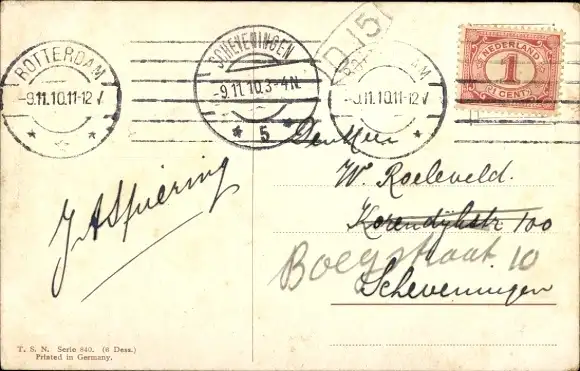 ROTTERDAM
-9.11.10.11-12 V
SCHEVENINGEN
-9.11.10.3-4.N.
5
D 15
-9.11.10.11-12 V
NEDERLAND
1
CENT
W. Roeleveld.
100
Boegstraat 10
Scheveningen
J. A. Spiering
T. S. N. Serie 840. (6 Dess.)
Printed in Germany.